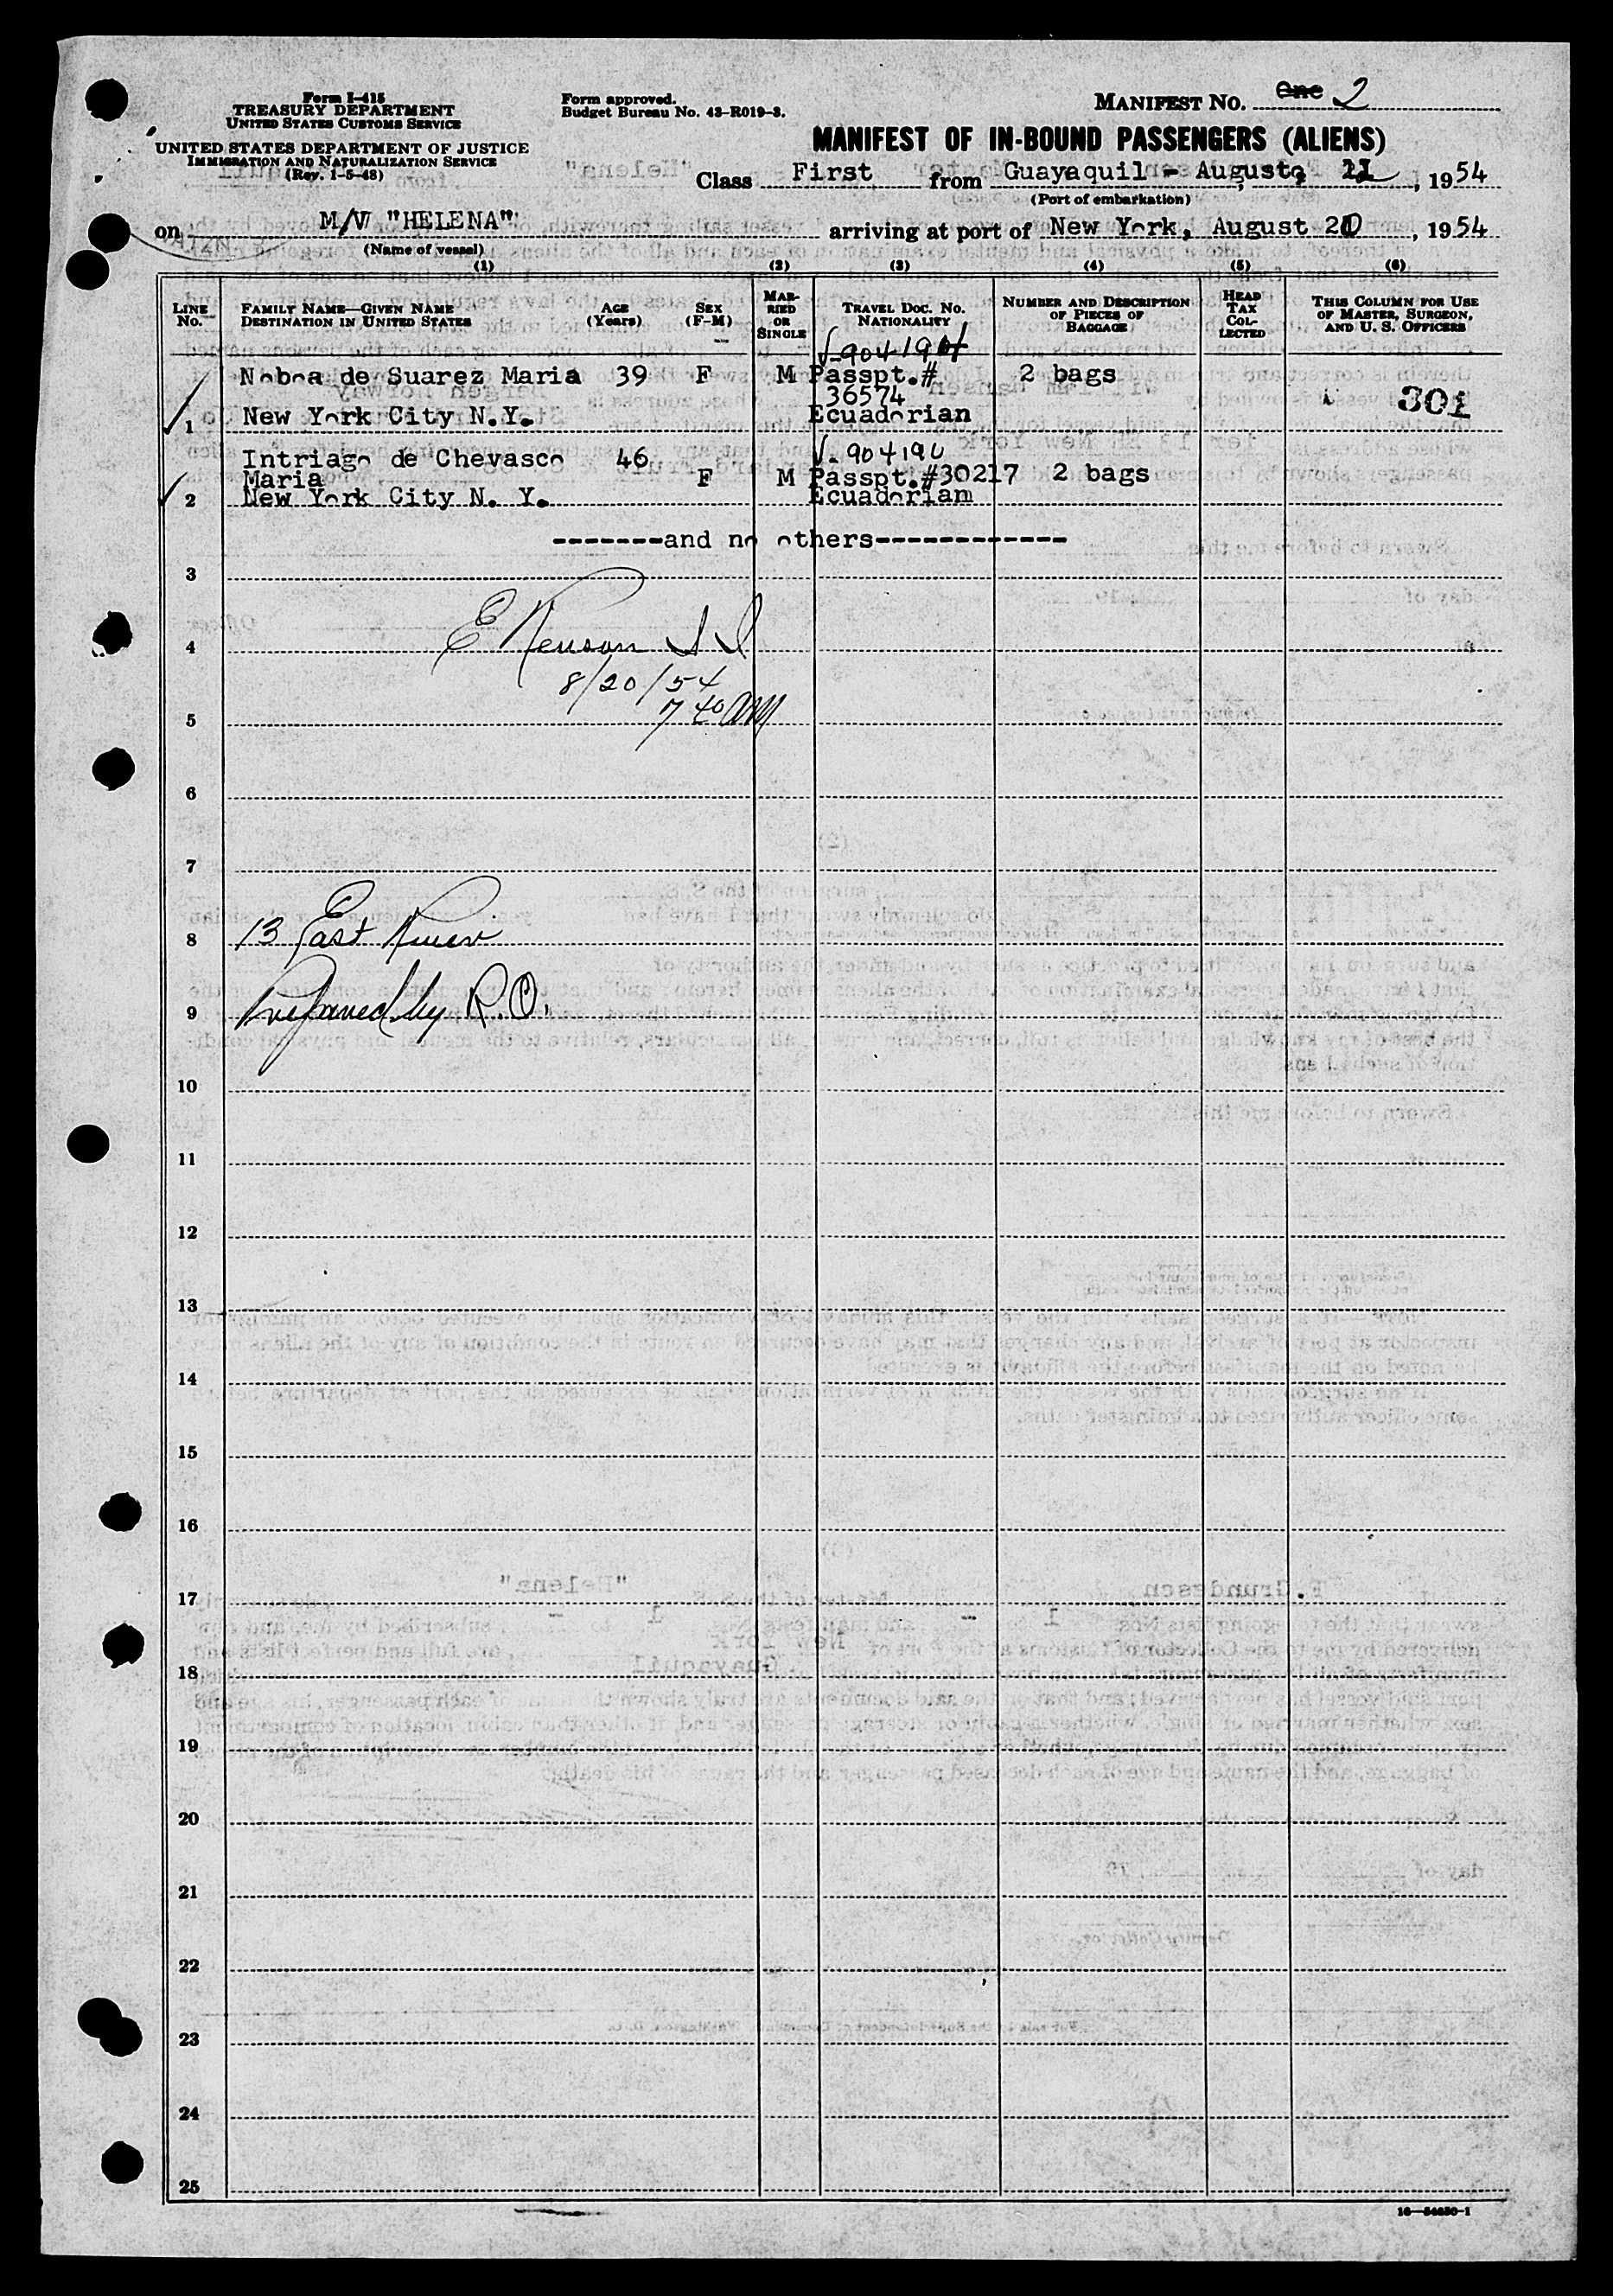 Form I-415
TREASURY DEPARTMENT
UNITED STATES CUSTOMS SERVICE
UNITED STATES DEPARTMENT OF JUSTICE
IMMIGRATION AND NATURALIZATION SERVICE
(Rev. 1-5-48)
Form approved.
Budget Bureau No. 43-R019-3.
MANIFEST NO. One 2
MANIFEST OF IN-BOUND PASSENGERS (ALIENS)
Class First from Guayaquil - August, 1954
(Port of embarkation)
on M/V "HELENA" arriving at port of New York, August 20, 1954
(Name of vessel)
(1) (2) (3) (4) (5) (6)
LINE No. FAMILY NAME—GIVEN NAME DESTINATION IN UNITED STATES AGE (Years) SEX (F-M) MARRIED OR SINGLE TRAVEL DOC. NO. NATIONALITY NUMBER AND DESCRIPTION OF PIECES OF BAGGAGE HEAD TAX COLLECTED THIS COLUMN FOR USE OF MASTER, SURGEON, AND U. S. OFFICERS
Noboa de Suarez Maria 39 F M Passpt.# 2 bags
36574 301
1 New York City N.Y. Ecuadorian
Intriago de Chevasco 46 V-904190
Maria F M Passpt.#30217 2 bags
2 New York City N. Y. Ecuadorian
-------and no others------------
3
4
8/20/54
7 40 AM
5
6
7
8 13 East River
9 Prepared by R.O.
10
11
12
13
14
15
16
17
18
19
20
21
22
23
24
25